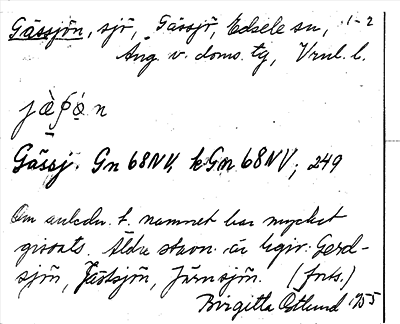 Gässjön, sjö, Gässjö, Edsele sn, 1-2
Ång. v. doms. tg, Vnl. l.
Gässj. Gn 68NV, kGm 68NV; 249
Om anledn. t. namnet har mycket
gissats. Äldre stavn. är bgir: Gerd-
sjön, Jästsjön, Järnsjön. (forts.)
Birgitta Östlund 1955